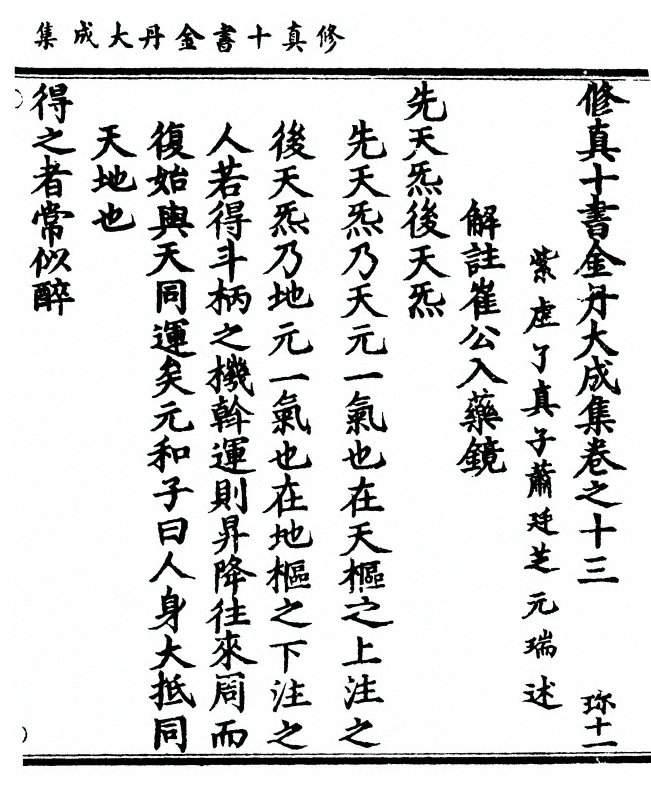 修真十書金丹大成集
修真十書金丹大成集卷之十三 珎十一
紫虛了真子蕭廷芝元瑞述
解註崔公入藥鏡
先天炁後天炁
先天炁乃天元一氣也在天樞之上注之
後天炁乃地元一氣也在地樞之下注之
人若得斗柄之機斡運則昇降往來周而
復始與天同運矣元和子曰人身大抵同
天地也
得之者常似醉